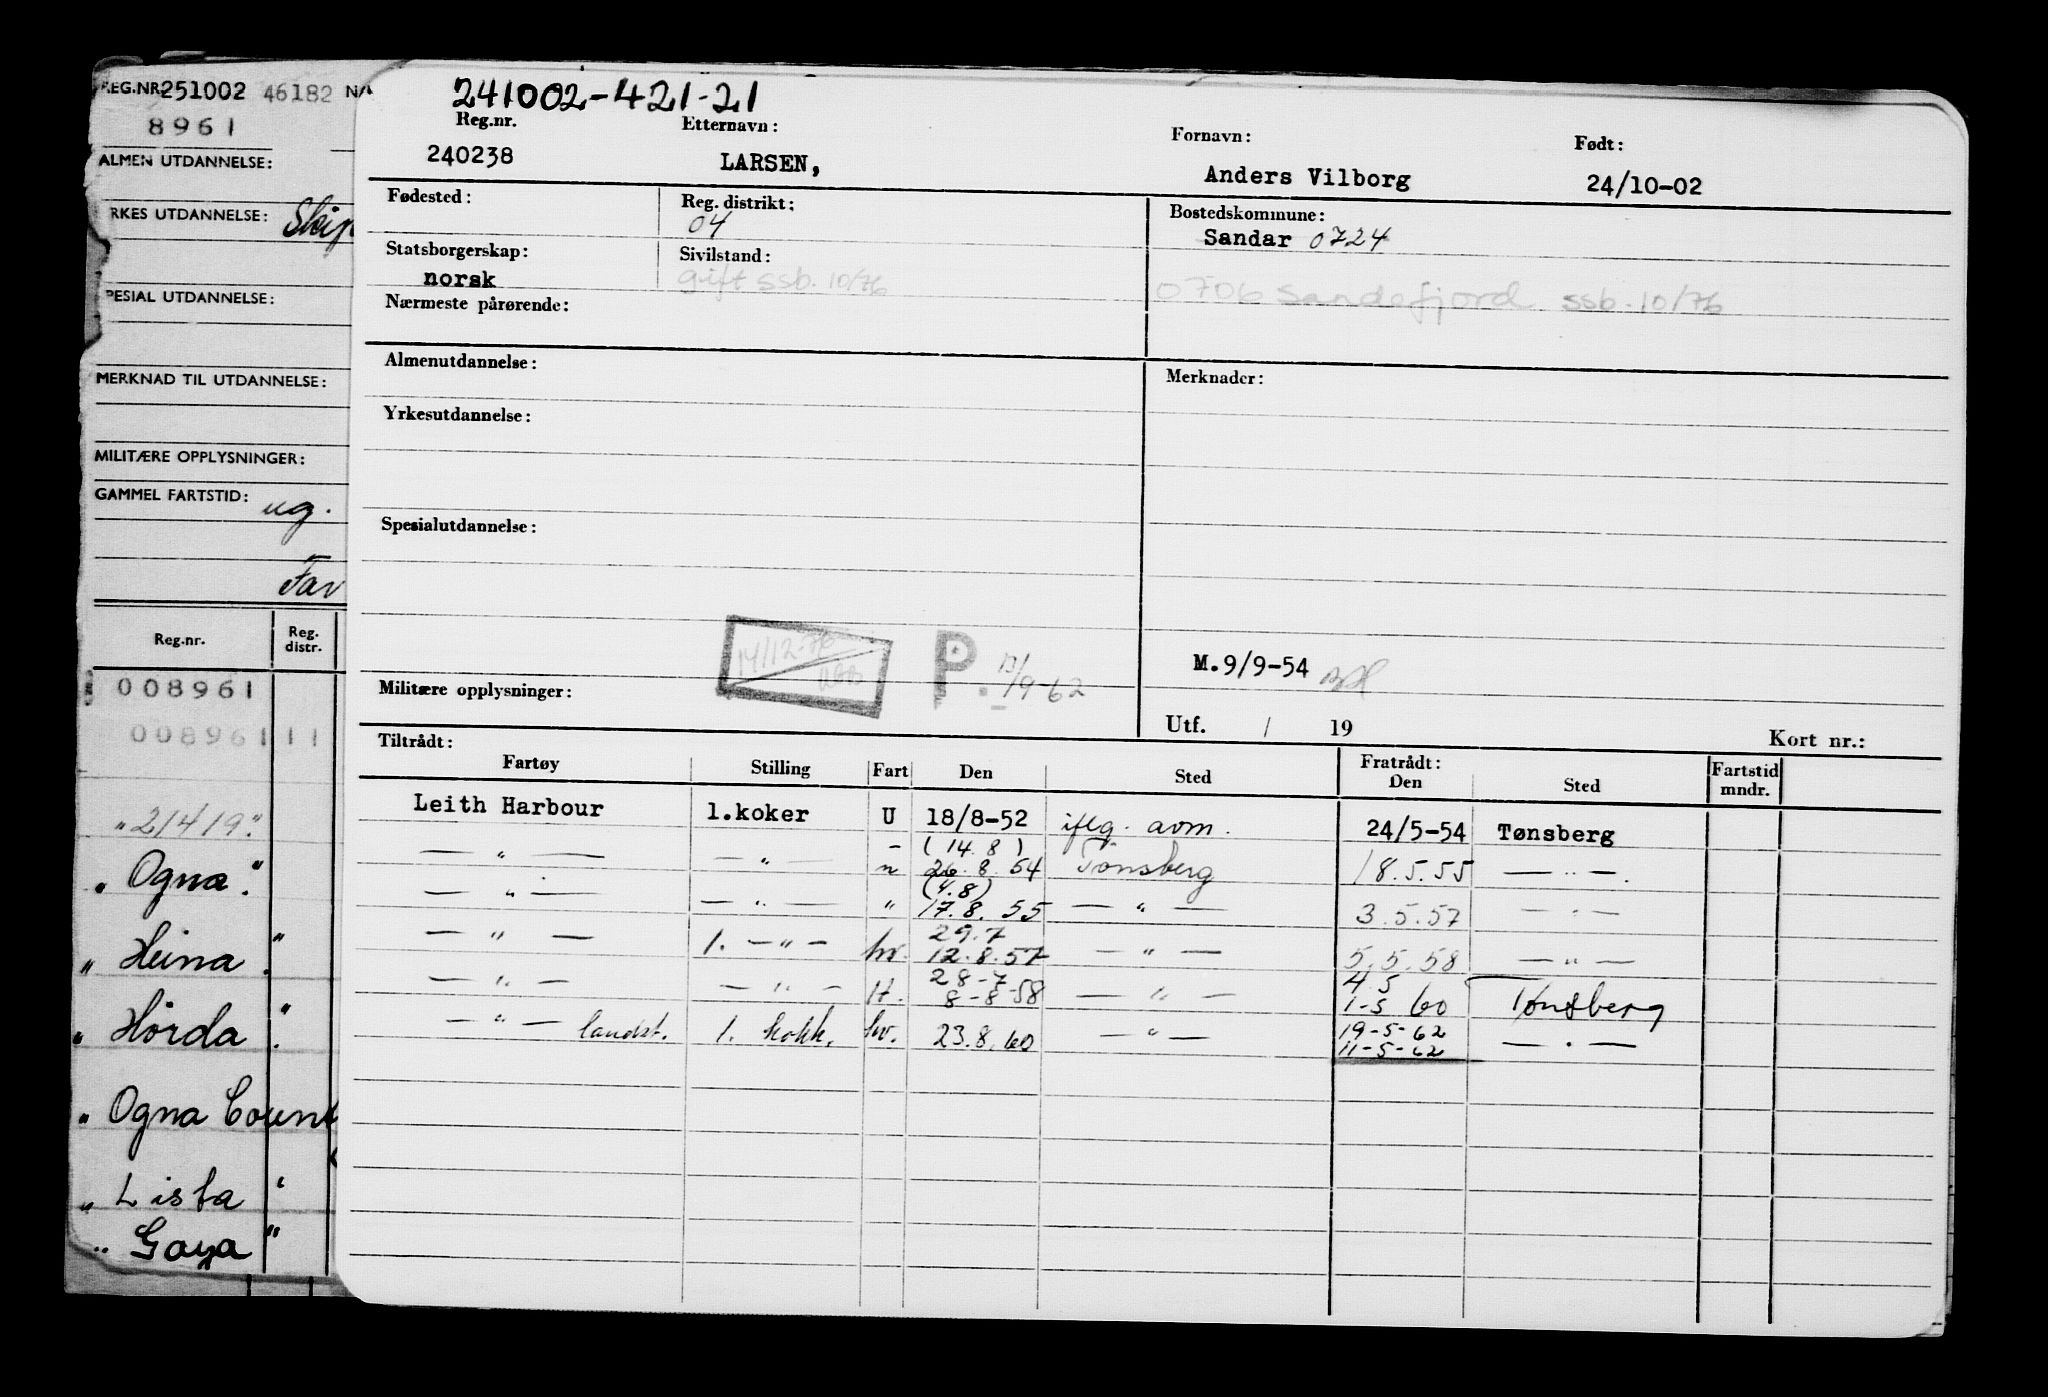 REG.NR. 251002 46182 NA
8961
ALMEN UTDANNELSE:
RKES UTDANNELSE:
PESIAL UTDANNELSE:
MERKNAD TIL UTDANNELSE:
MILITÆRE OPPLYSNINGER:
GAMMEL FARTSTID: ug.
Far
Reg.nr. Reg. distr.
008961
008961 11
"21419"
"Ogna"
"Heina"
"Horda"
"Ogna Count
"Lista"
"Gaya"
241002-421-21
Reg.nr. Etternavn: Fornavn: Født:
240238 LARSEN, Anders Vilborg 24/10-02
Fødested: Reg. distrikt: Bostedskommune:
04 Sandar 0724
Statsborgerskap: Sivilstand:
norsk gift ssb. 10/76 0706 Sandefjord ssb. 10/76
Nærmeste pårørende:
Almenutdannelse: Merknader:
Yrkesutdannelse:
Spesialutdannelse:
14/12-76
P. 13/9-62
M.9/9-54
Militære opplysninger:
Utf. / 19 Kort nr.:
Tiltrådt: Fratrådt:
Fartøy Stilling Fart Den Sted Den Sted Fartstid mndr.
Leith Harbour 1.koker U 18/8-52 iflg. avm. 24/5-54 Tønsberg
(14.8)
— " — — " — " 26.8.54 Tønsberg 18.5.55 — " —
(4.8)
— " — — " — " 17.8.55 — " — 3.5.57 — " —
29.7
— " — 1. — " — hv. 12.8.57 — " — 5.5.58 — " —
28-7 4 5
— " — — " — 8-8-58 — " — 1-5 60 Tønsberg
19-5-62
— " — landst. 1. kokk. hv. 23.8.60 — " — 11-5-62 — " —